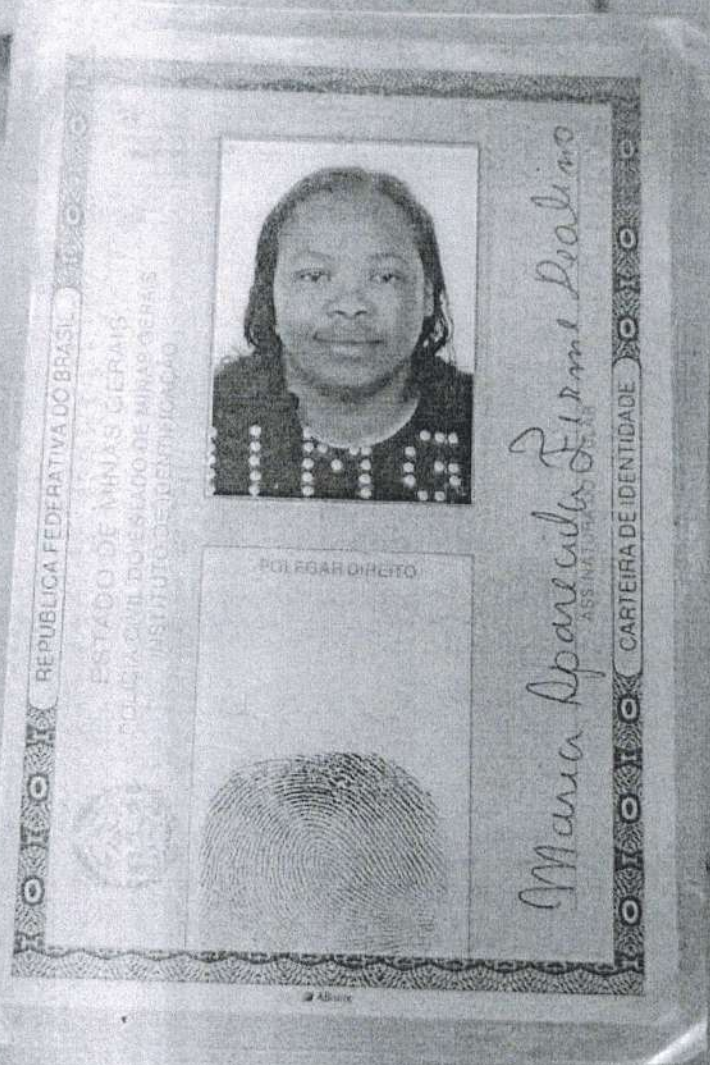 REPÚBLICA FEDERATIVA DO BRASIL
ESTADO DE MINAS GERAIS
POLÍCIA CIVIL DO ESTADO DE MINAS GERAIS
INSTITUTO DE IDENTIFICAÇÃO
POLEGAR DIREITO
Maria Aparecida
ASSINATURA DO TITULAR
CARTEIRA DE IDENTIDADE